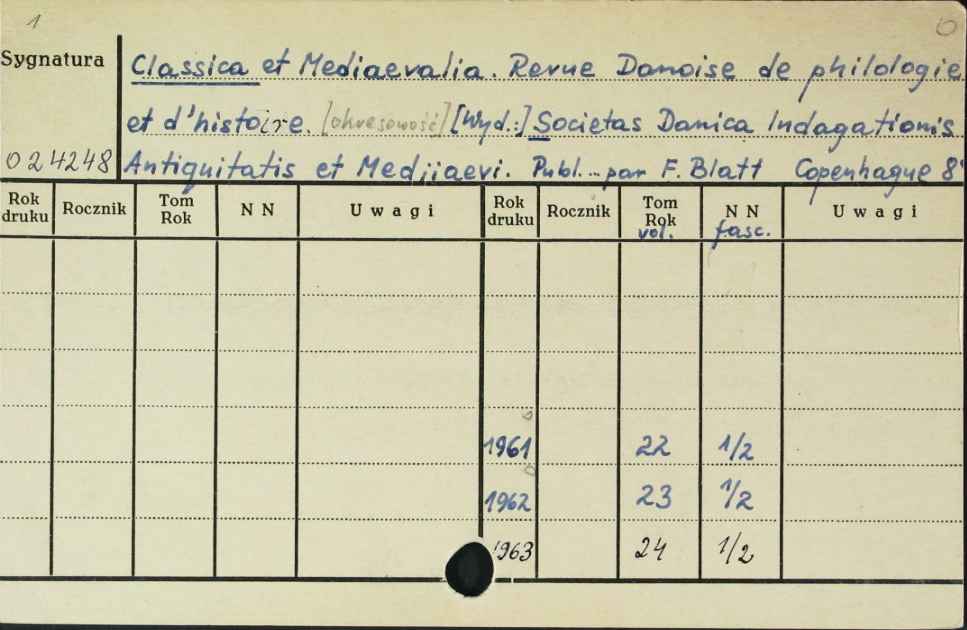 1
Sygnatura Classica et Mediaevalia. Revue Danoise de philologie
et d'histoire. [okresowość] [Wyd.:] Societas Danica Indagationis
024248 Antiquitatis et Mediiaevi. Publ... par F. Blatt Copenhague 8°
Rok druku Rocznik Tom Rok N N Uwagi Rok druku Rocznik Tom Rok vol. N N fasc. Uwagi
1961 22 1/2
1962 23 1/2
1963 24 1/2